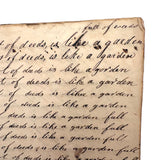 full of weeds
of deeds, is like a garden
of deeds, is like a garden
of deeds is like a garden
of deeds is like a garden
of deeds is like a garden
of deeds is like a garden
of deeds is like a garden full
of deeds is like a garden
of deeds is like a garden full
of deeds is like a garden